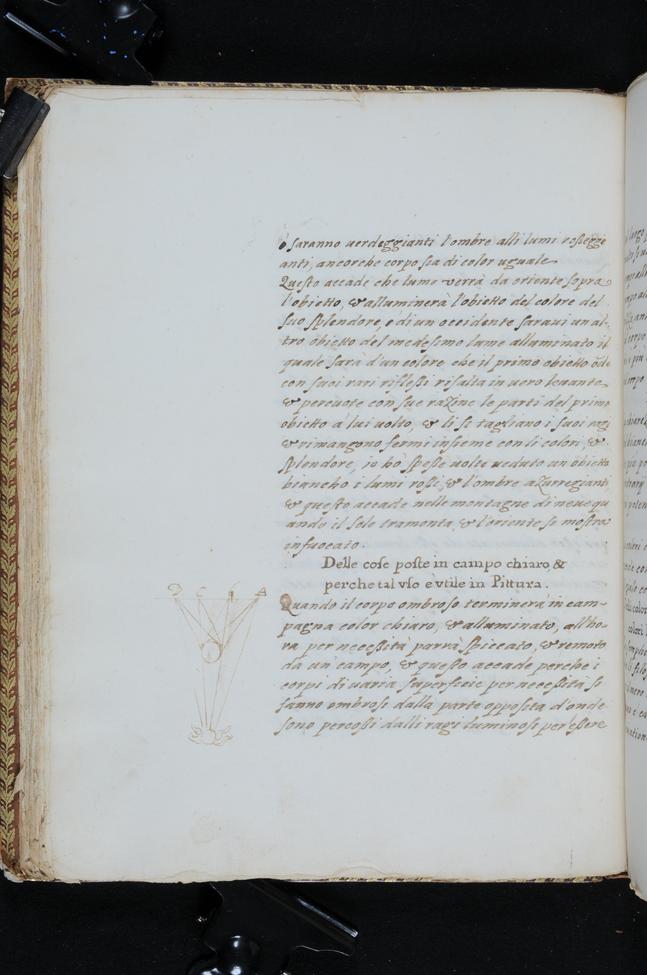 ò saranno verdeggianti l'ombre alli lumi rosseggi
anti, ancorche corpo sia di color uguale
Questo accade che lume verrà da oriente sopra
l'obietto, & alluminerà l'obietto del colore del
suo splendore, e di un occidente saravi un al-
tro obietto del medesimo lume alluminato il
quale sarà d'un colore che il primo obietto
con suoi rari riflessi risalta in vero levante
& percuote con sue razine le parti del primo
obietto à lui volto, & li si tagliano i suoi
& rimangono fermi insieme con li colori, &
splendore, io hò spesse volte veduto un obietto
biancho i lumi rossi, & l'ombre azurregianti
& questo accade nelle montagne di neve qu
ando il sole tramonta, & l'oriente si mostra
infuocato.
Delle cose poste in campo chiaro, &
perche tal vso e vtile in Pittura.
Quando il corpo ombroso terminerà in cam-
pagna color chiaro, & alluminato, all'ho-
ra per necessità parrà spiccato, & remoto
da un' campo, & questo accade perche i
corpi di varia superficie per necessità si
fanno ombrosi dalla parte opposita d'onde
sono percossi dalli ragi luminosi per essere
D C B A